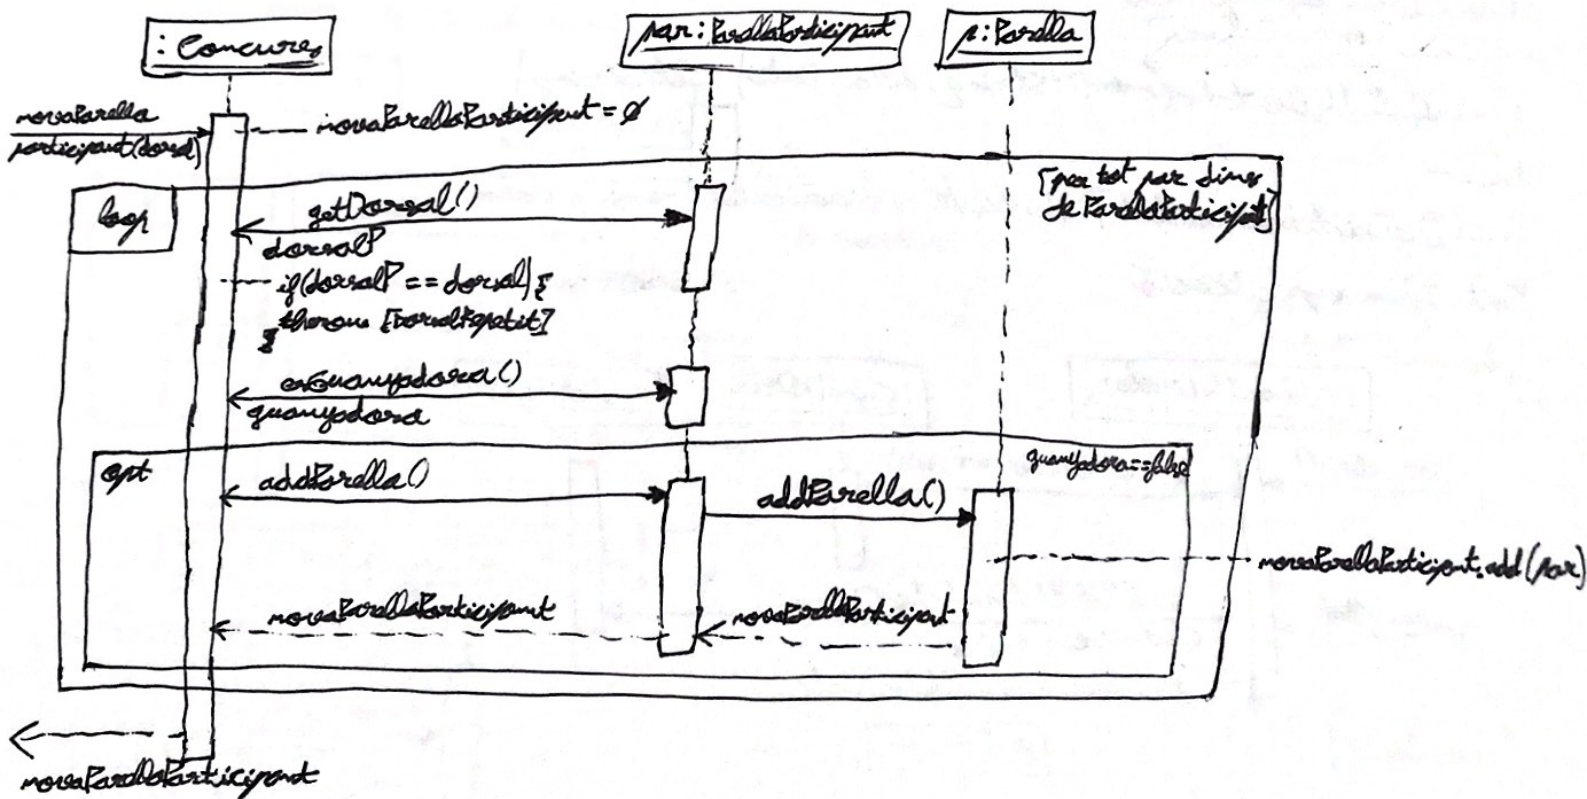 : Concures
par: ParellaParticipant
p: Parella
novaParella
participant(dorsal)
novaParellaParticipant = ∅
loop
[per tot par dins
de ParellaParticipant]
getDorsal()
dorsalP
if(dorsalP == dorsal) {
throws [DorsalRepetit]
}
esGuanyadora()
guanyadora
opt
guanyadora==false
addParella()
addParella()
novaParellaParticipant.add(par)
novaParellaParticipant
novaParellaParticipant
novaParellaParticipant